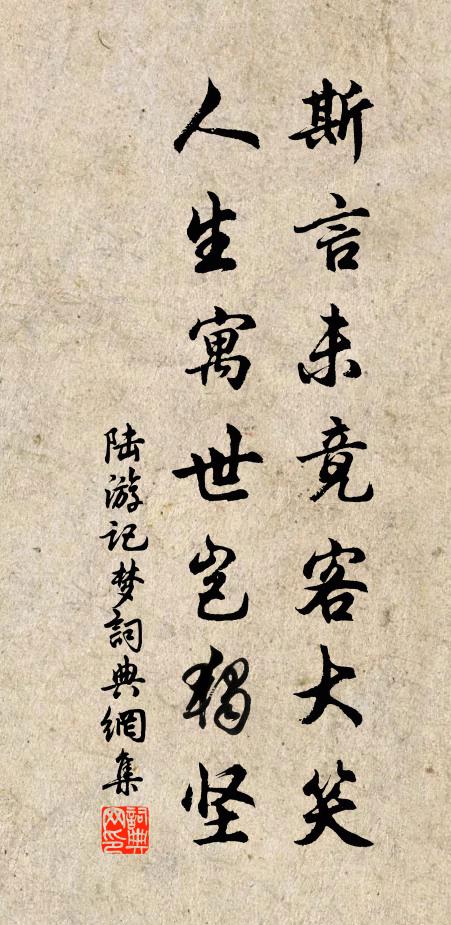 斯言未竟客大笑
人生寓世岂独坚
陆游记梦詞典網集
詞典
网印